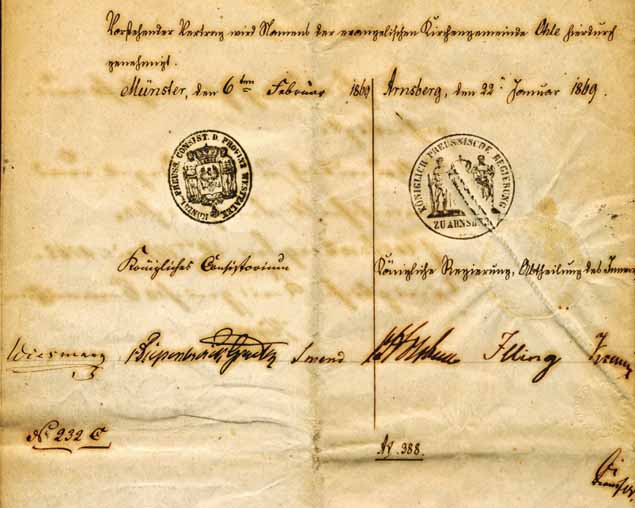 Vorstehender Vertrag wird Namens der evangelischen Kirchengemeinde Ohle hierdurch
genehmigt.
Münster, den 6ten Februar 1869
KÖNIGL. PREUSS. CONSIST. D. PROVINZ WESTFALEN
Königliches Consistorium
Wiesmann
Nº 232 C
Arnsberg, den 22 Januar 1869.
KÖNIGLICH PREUSSISCHE REGIERUNG
ZU ARNSBERG
Königliche Regierung, Abtheilung des Innern
Illing
388.